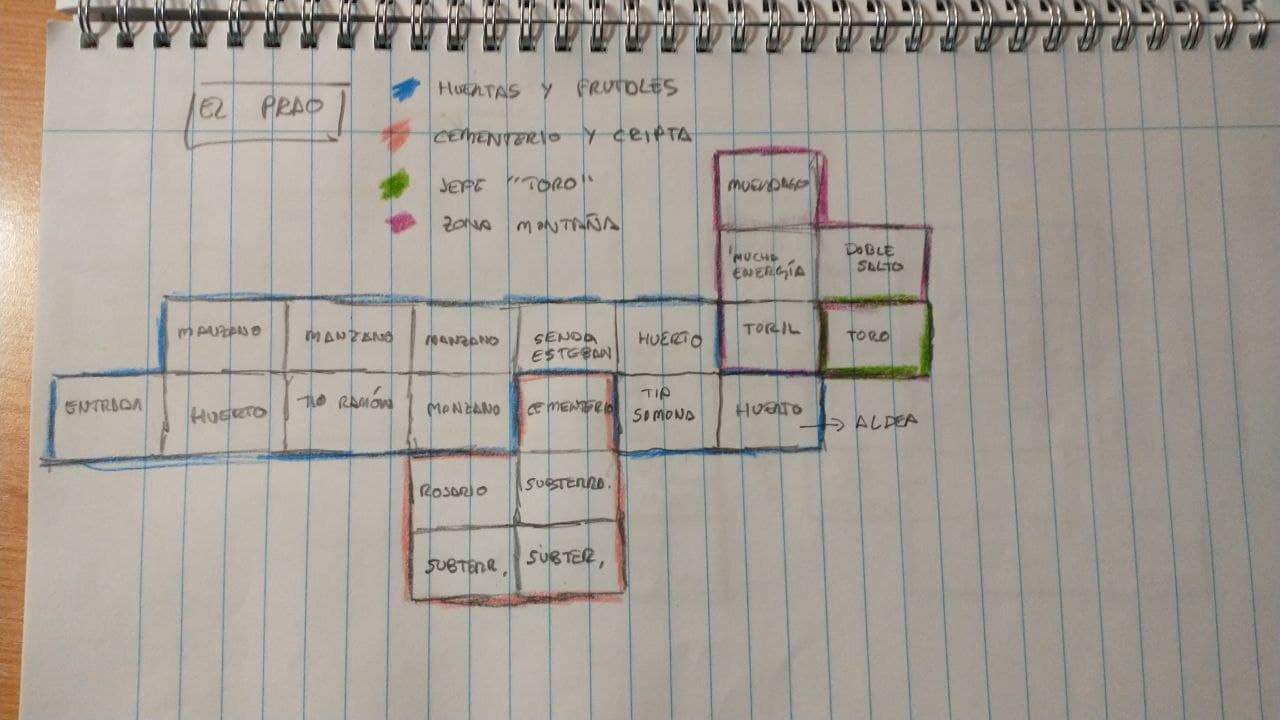 EL PRAO
HUERTAS Y FRUTALES
CEMENTERIO Y CRIPTA
JEFE "TORO"
ZONA MONTAÑA
MUÉRDAGO
MUCHA
ENERGÍA
DOBLE
SALTO
MANZANO
MANZANO
MANZANO
SENDA
ESTEBAN
HUERTO
TORIL
TORO
ENTRADA
HUERTO
TIO RAMÓN
MANZANO
CEMENTERIO
TIA
SIMONA
HUERTO
→ ALDEA
ROSARIO
SUBTERRA.
SUBTERR.
SUBTER.